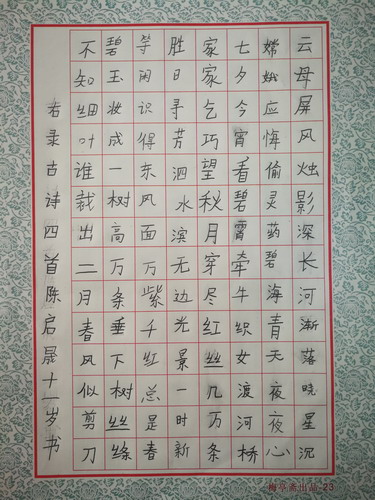 云母屏风烛影深长河渐落晓星沉
嫦娥应悔偷灵药碧海青天夜夜心
七夕今宵看碧霄牵牛织女渡河桥
家家乞巧望秋月穿尽红丝几万条
胜日寻芳泗水滨无边光景一时新
等闲识得东风面万紫千红总是春
碧玉妆成一树高万条垂下树丝绦
不知细叶谁裁出二月春风似剪刀
右录古诗四首陈启晟十一岁书
出品-23